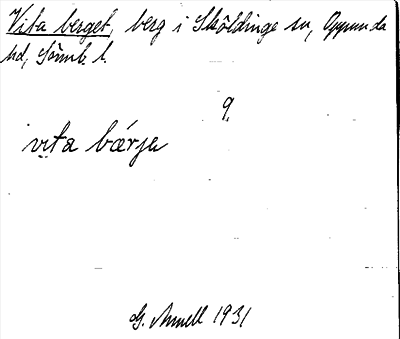 Vita berget, berg i Sköldinge sn, Oppunda
hd, Sörml l.
9.
vita bærje
G. Annell 1931